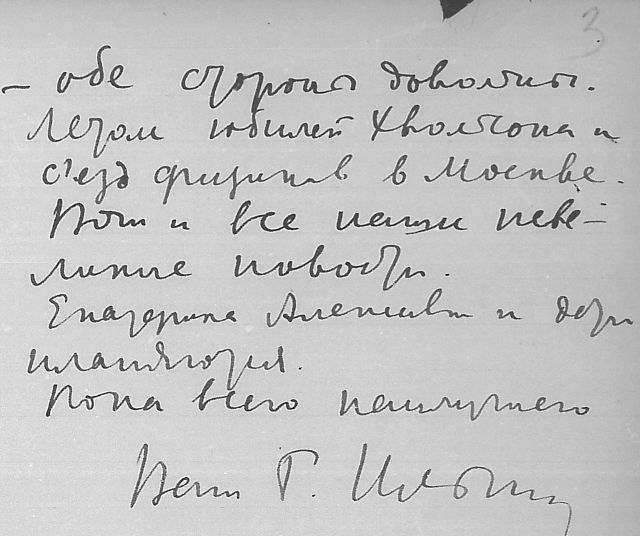 3
– обе стороны довольны.
Летом юбилей Хвольсона и
с'езд физиков в Москве.
Вот и все наши неве-
ликие новости.
Екатерина Алексеевна и дети
кланяются.
Пока всего наилучшего
Ваш Г.